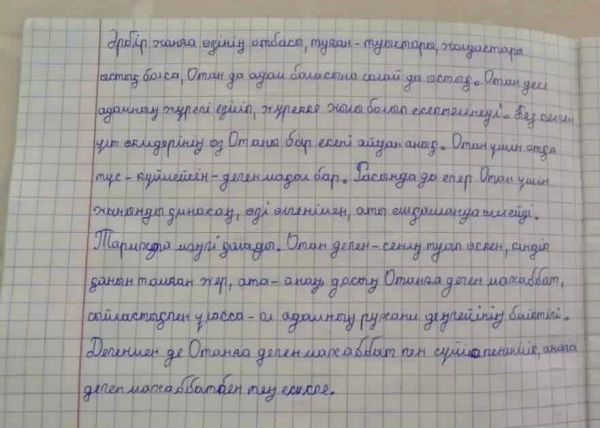 Әрбір жанға өзінің отбасы, туған-туыстары, жолдастары
ыстық болса, Отан да адам баласына солай да ыстық. Отан десе
адамның жүрегі езіліп, жүрекке жылы болып есептелінеді. Кез келген
ұлт өкілдерінің өз Отаны бар екені айдан анық. Отан үшін отқа
түс - күймейсің - деген мақал бар. Расында да егер Отан үшін
жаныңды қинасаң, өзі өлгенімен, аты ешқашанда өлмейді.
Тарихта мәңгі қалады. Отан деген - сенің туып өскен, кіндік
қаның тамған жер, ата-анаң, достық Отанға деген махаббат,
сыйластықпен ұласса - ол адамның рухани деңгейінің биіктігі.
Дегенмен де Отанға деген махаббат пен сүйіспеншілік, анаға
деген махаббатбен тең келсе.